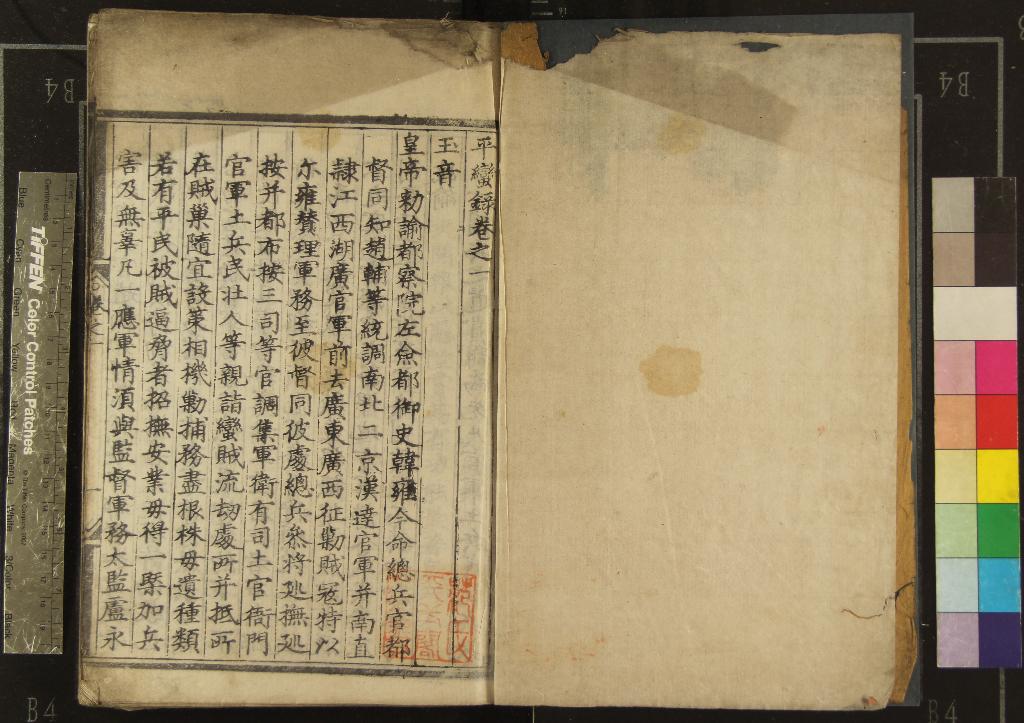 平蠻錄卷之一
玉音
皇帝勅諭都察院左僉都御史韓雍今命總兵官都
督同知趙輔等統調南北二京漢達官軍并南直
隷江西湖廣官軍前去廣東廣西征勦賊冦特以
尒雍賛理軍務至彼督同彼處總兵叅將廵撫廵
按并都布按三司等官調集軍衛有司土官衙門
官軍土兵民壮人等親詣蠻賊流刼處所并抵所
在賊巢隨宜設策相機勦捕務盡根株毋遺種類
若有平民被賊逼脅者招撫安業毋得一槩加兵
害及無辜凡一應軍情湏與監督軍務太監盧永
卷之一
TIFFEN Color Control Patches
Blue
Cyan
Green
Yellow
Red
Magenta
White
3/Color
Black
Centimetres
B4
B4
B4
B4